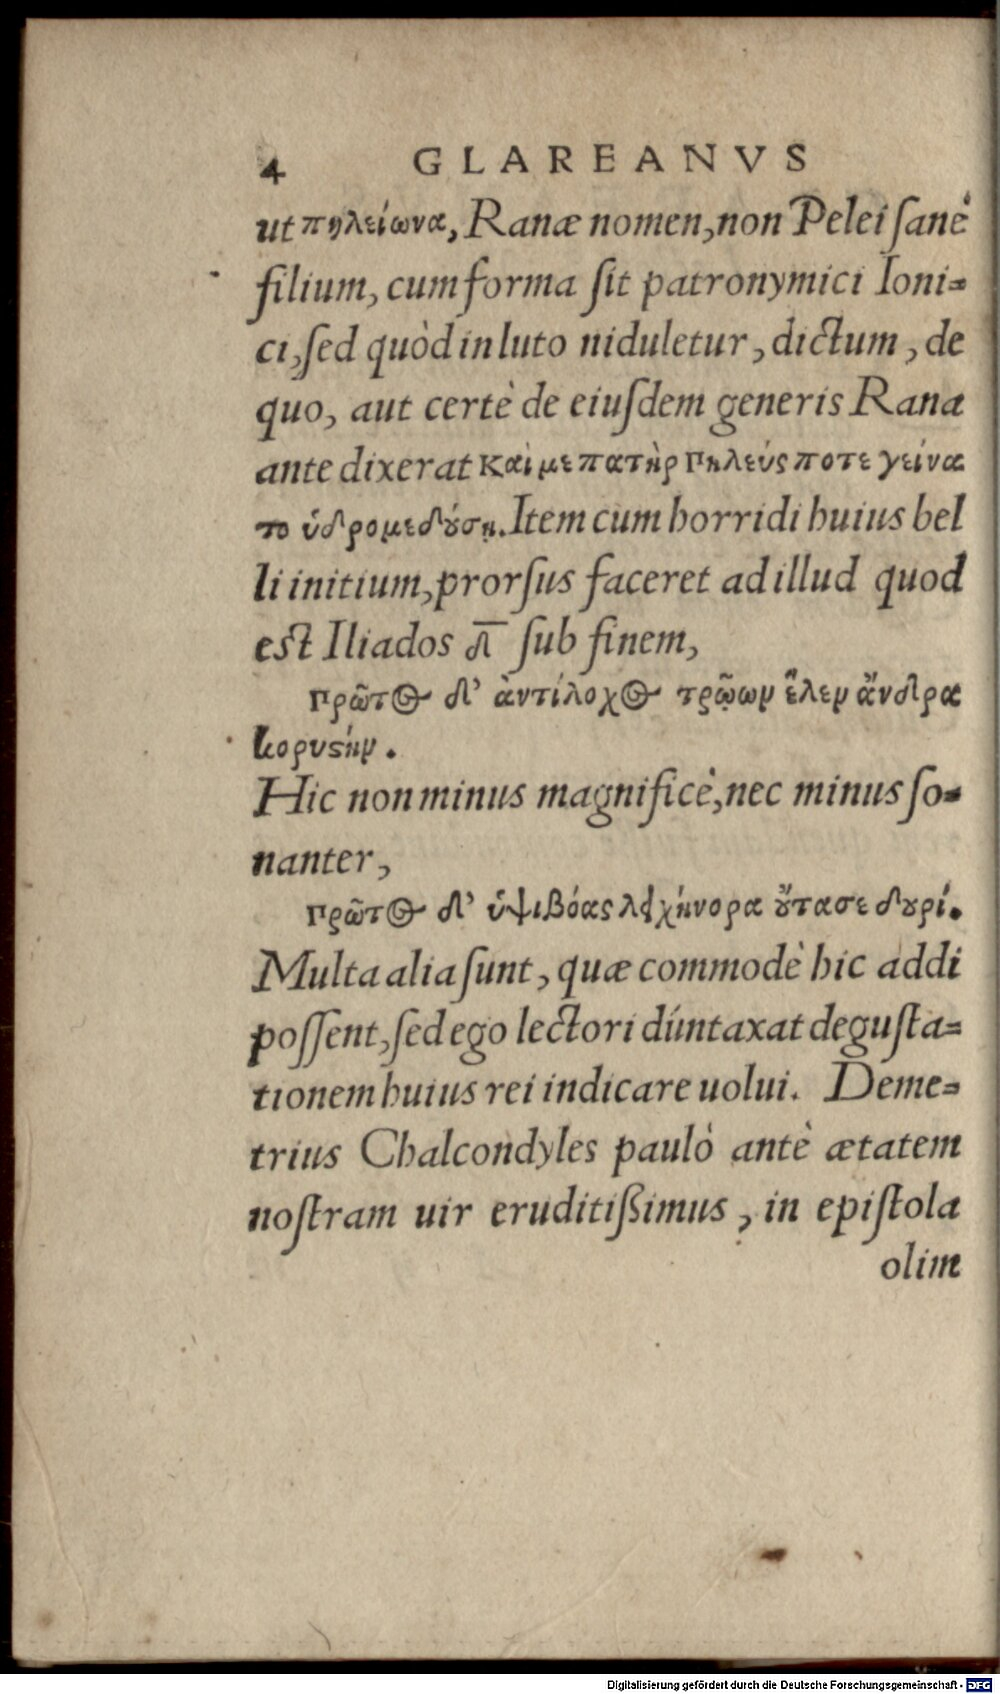 4 GLAREANVS
ut πηλείωνα, Ranæ nomen, non Pelei ſanè
filium, cum forma ſit patronymici Ioni-
ci, ſed quòd in luto niduletur, dictum, de
quo, aut certè de eiuſdem generis Rana
ante dixerat καὶ με πατὴρ πηλεύς ποτε γείνα
το ὑδρομεδούσῃ. Item cum horridi huius bel
li initium, prorſus faceret ad illud quod
est Iliados δ̅ ſub finem,
πρῶτος δ' ἀντίλοχος τρῴων ἕλεν ἄνδρα
κορυϛήν.
Hic non minus magnificè, nec minus ſo-
nanter,
πρῶτος δ' ὑψιβόας λειχήνορα οὔτασε δουρί.
Multa alia ſunt, quæ commodè hic addi
poſſent, ſed ego lectori dúntaxat deguſta-
tionem huius rei indicare uolui. Deme-
trius Chalcondyles paulò antè ætatem
noſtram uir eruditißimus, in epiſtola
olim
Digitalisierung gefördert durch die Deutsche Forschungsgemeinschaft - DFG